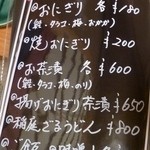 おにぎり 各¥180
(鮭・タラコ・梅・おかか)
焼おにぎり ¥200
お茶漬 各¥600
(鮭・タラコ・梅・のり)
揚げおにぎり茶漬¥650
稲庭ざるうどん ¥800